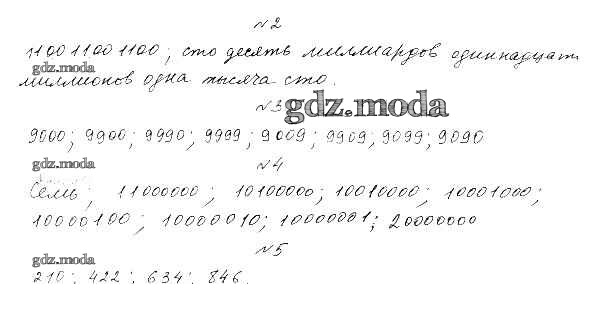 №2
110011001100; сто десять миллиардов одиннадцать
gdz.moda
миллионов одна тысяча сто.
№3
gdz.moda
9000; 9900; 9990; 9999; 9009; 9909; 9099; 9090
gdz.moda
№4
Семь; 11000000; 10100000; 10010000; 10001000;
10000100; 10000010; 10000001; 20000000
№5
gdz.moda
210; 422; 634; 846.